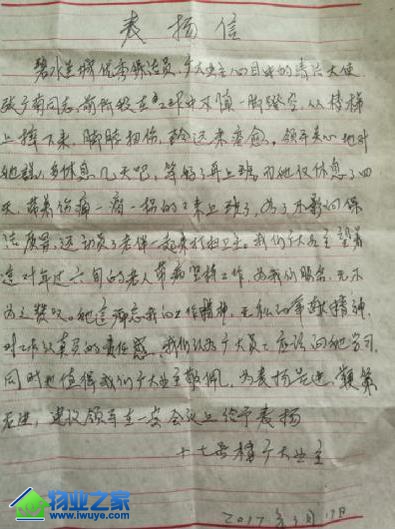 表扬信
碧水莲城优秀保洁员,广大业主心目中的清洁天使
同志,前所段在工作中不慎一脚踏空,从楼梯
上摔下来,脚脖扭伤,至今还未痊愈。领导关心地对
她说,多休息几天吧,等好了再上班,而她仅休息了四
天,带着伤痛一瘸一拐的又来上班了,为了不影响保
洁质量,还动员了老伴一起来打扫卫生。我们广大业主望着
这对年过六旬的老人带病坚持工作,为我们服务,无不
为之赞叹。她这种忘我的工作精神,无私的奉献精神,
对工作认真负责的责任感,我们认为广大员工应该向她学习,
同时也值得我们广大业主敬佩,为表扬先进,鞭策
后进,建议领导在一定会议上给予表扬
十七号楼广大业主
2017年3月17日
物业之家
www.iwuye.com